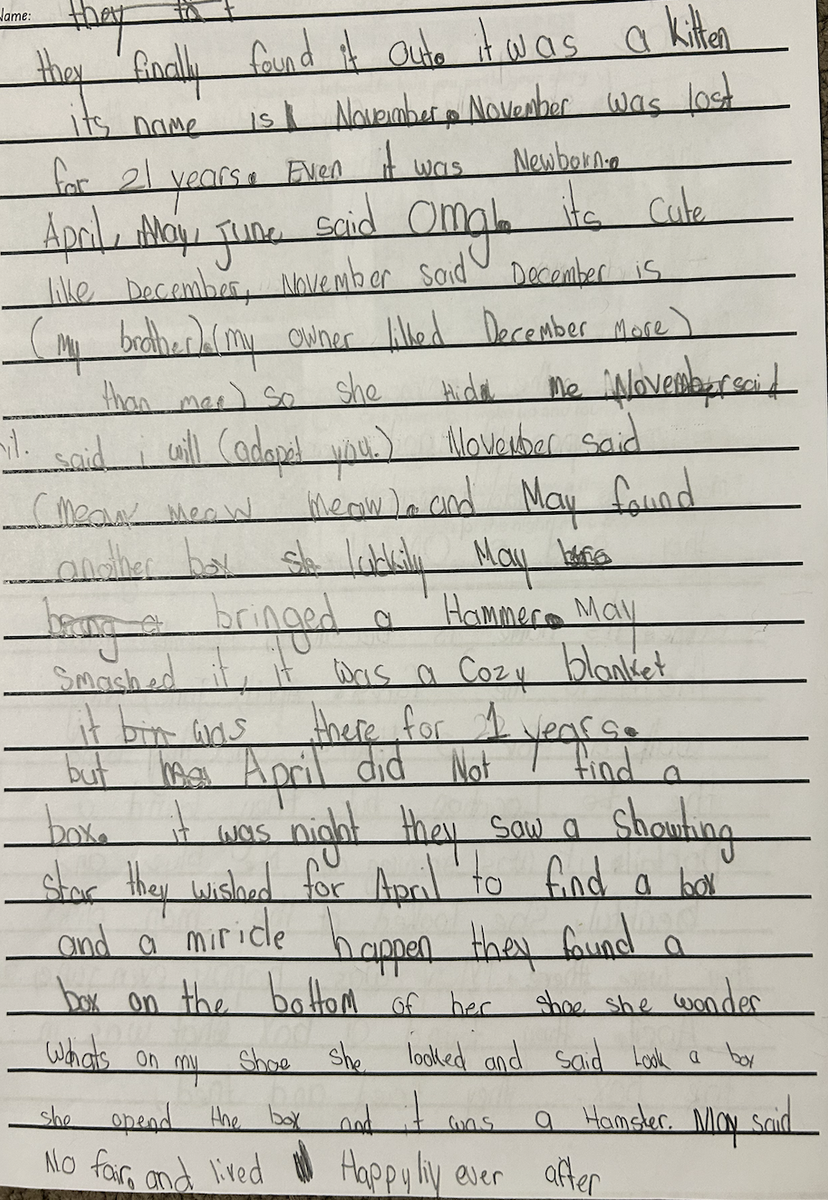 Name: they to t
they finally found it out. it was a kitten
its name is November. November was lost
for 21 years. Even it was Newborn.
April, May, june said Omg. its cute
like December, November said December is
(my brother).(my owner liked December more)
than mee) so she hide me November said
said i will (adopet you.) November said
(meaw meaw meaw). and May found
another box luckily May
bringed a Hammer. May
smashed it, it was a cozy blanket
it was there for 1 years.
but April did Not find a
box. it was night they saw a showting
star they wished for April to find a box
and a miricle happen they found a
box on the bottom of her shoe she wonder
whats on my shoe she looked and said look a box
she opend the box and it was a Hamster. May said
No fair. and lived Happyliy ever after